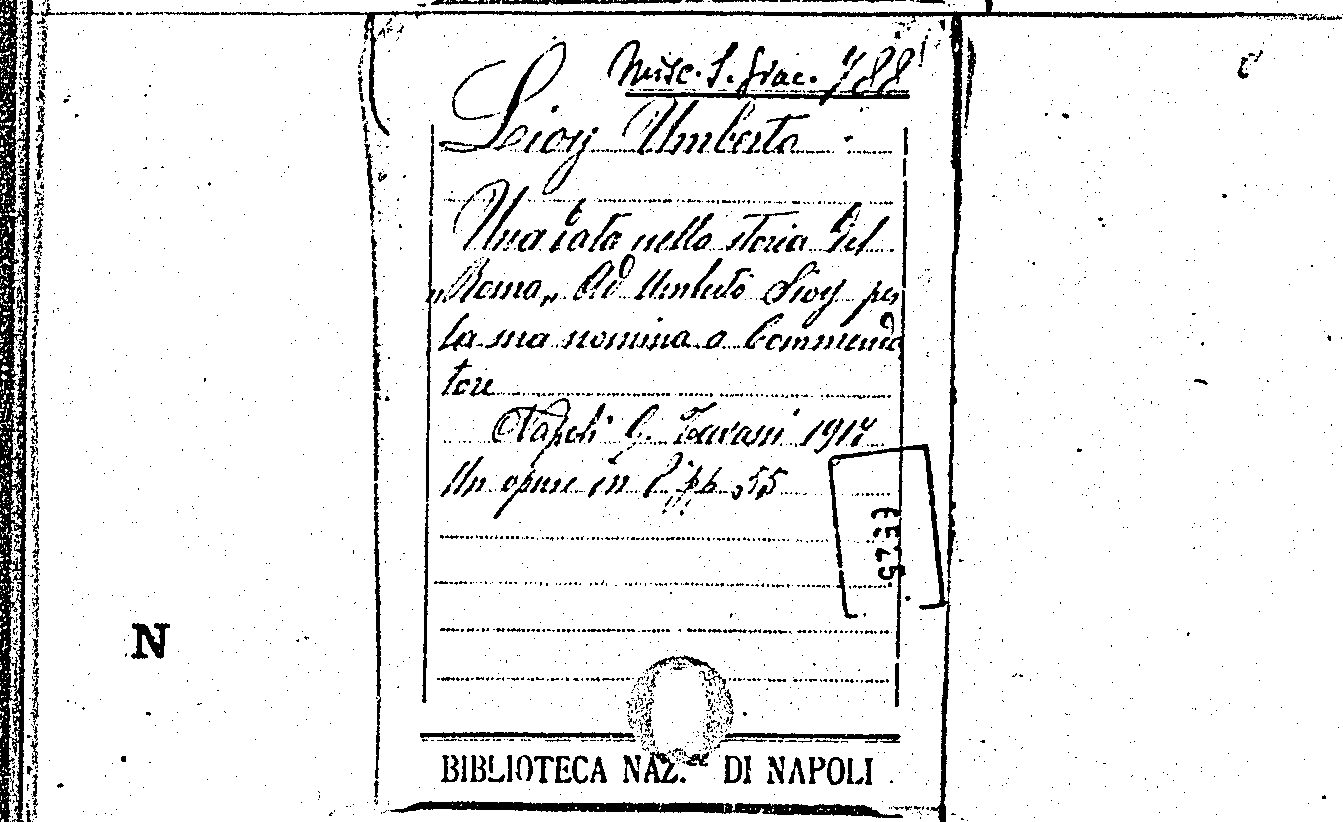 Misc. S. Giac. 788
Lioy Umberto
Una data nella storia del
"Roma" Ad Umberto Lioy per
la sua nomina a Commenda
tore
Napoli G. Tavassi 1917
Un opusc in 8° pp. 55
EE25
N
BIBLIOTECA NAZ. DI NAPOLI